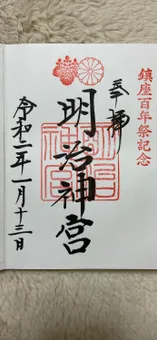 鎮座百年祭記念
奉拝
明治神宮
令和二年一月十三日